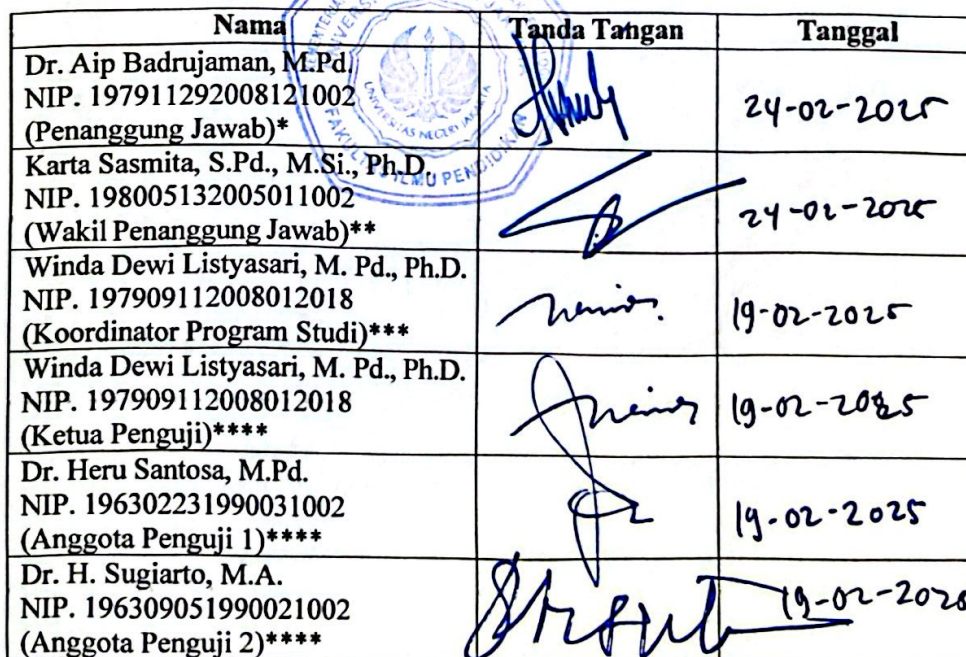 Nama Tanda Tangan Tanggal
Dr. Aip Badrujaman, M.Pd.
NIP. 197911292008121002
(Penanggung Jawab)*
24-02-2025
Karta Sasmita, S.Pd., M.Si., Ph.D.
NIP. 198005132005011002
(Wakil Penanggung Jawab)**
24-02-2025
Winda Dewi Listyasari, M. Pd., Ph.D.
NIP. 197909112008012018
(Koordinator Program Studi)***
19-02-2025
Winda Dewi Listyasari, M. Pd., Ph.D.
NIP. 197909112008012018
(Ketua Penguji)****
19-02-2025
Dr. Heru Santosa, M.Pd.
NIP. 196302231990031002
(Anggota Penguji 1)****
19-02-2025
Dr. H. Sugiarto, M.A.
NIP. 196309051990021002
(Anggota Penguji 2)****
19-02-2025
UNIVERSITAS NEGERI JAKARTA
FAKULTAS ILMU PENDIDIKAN